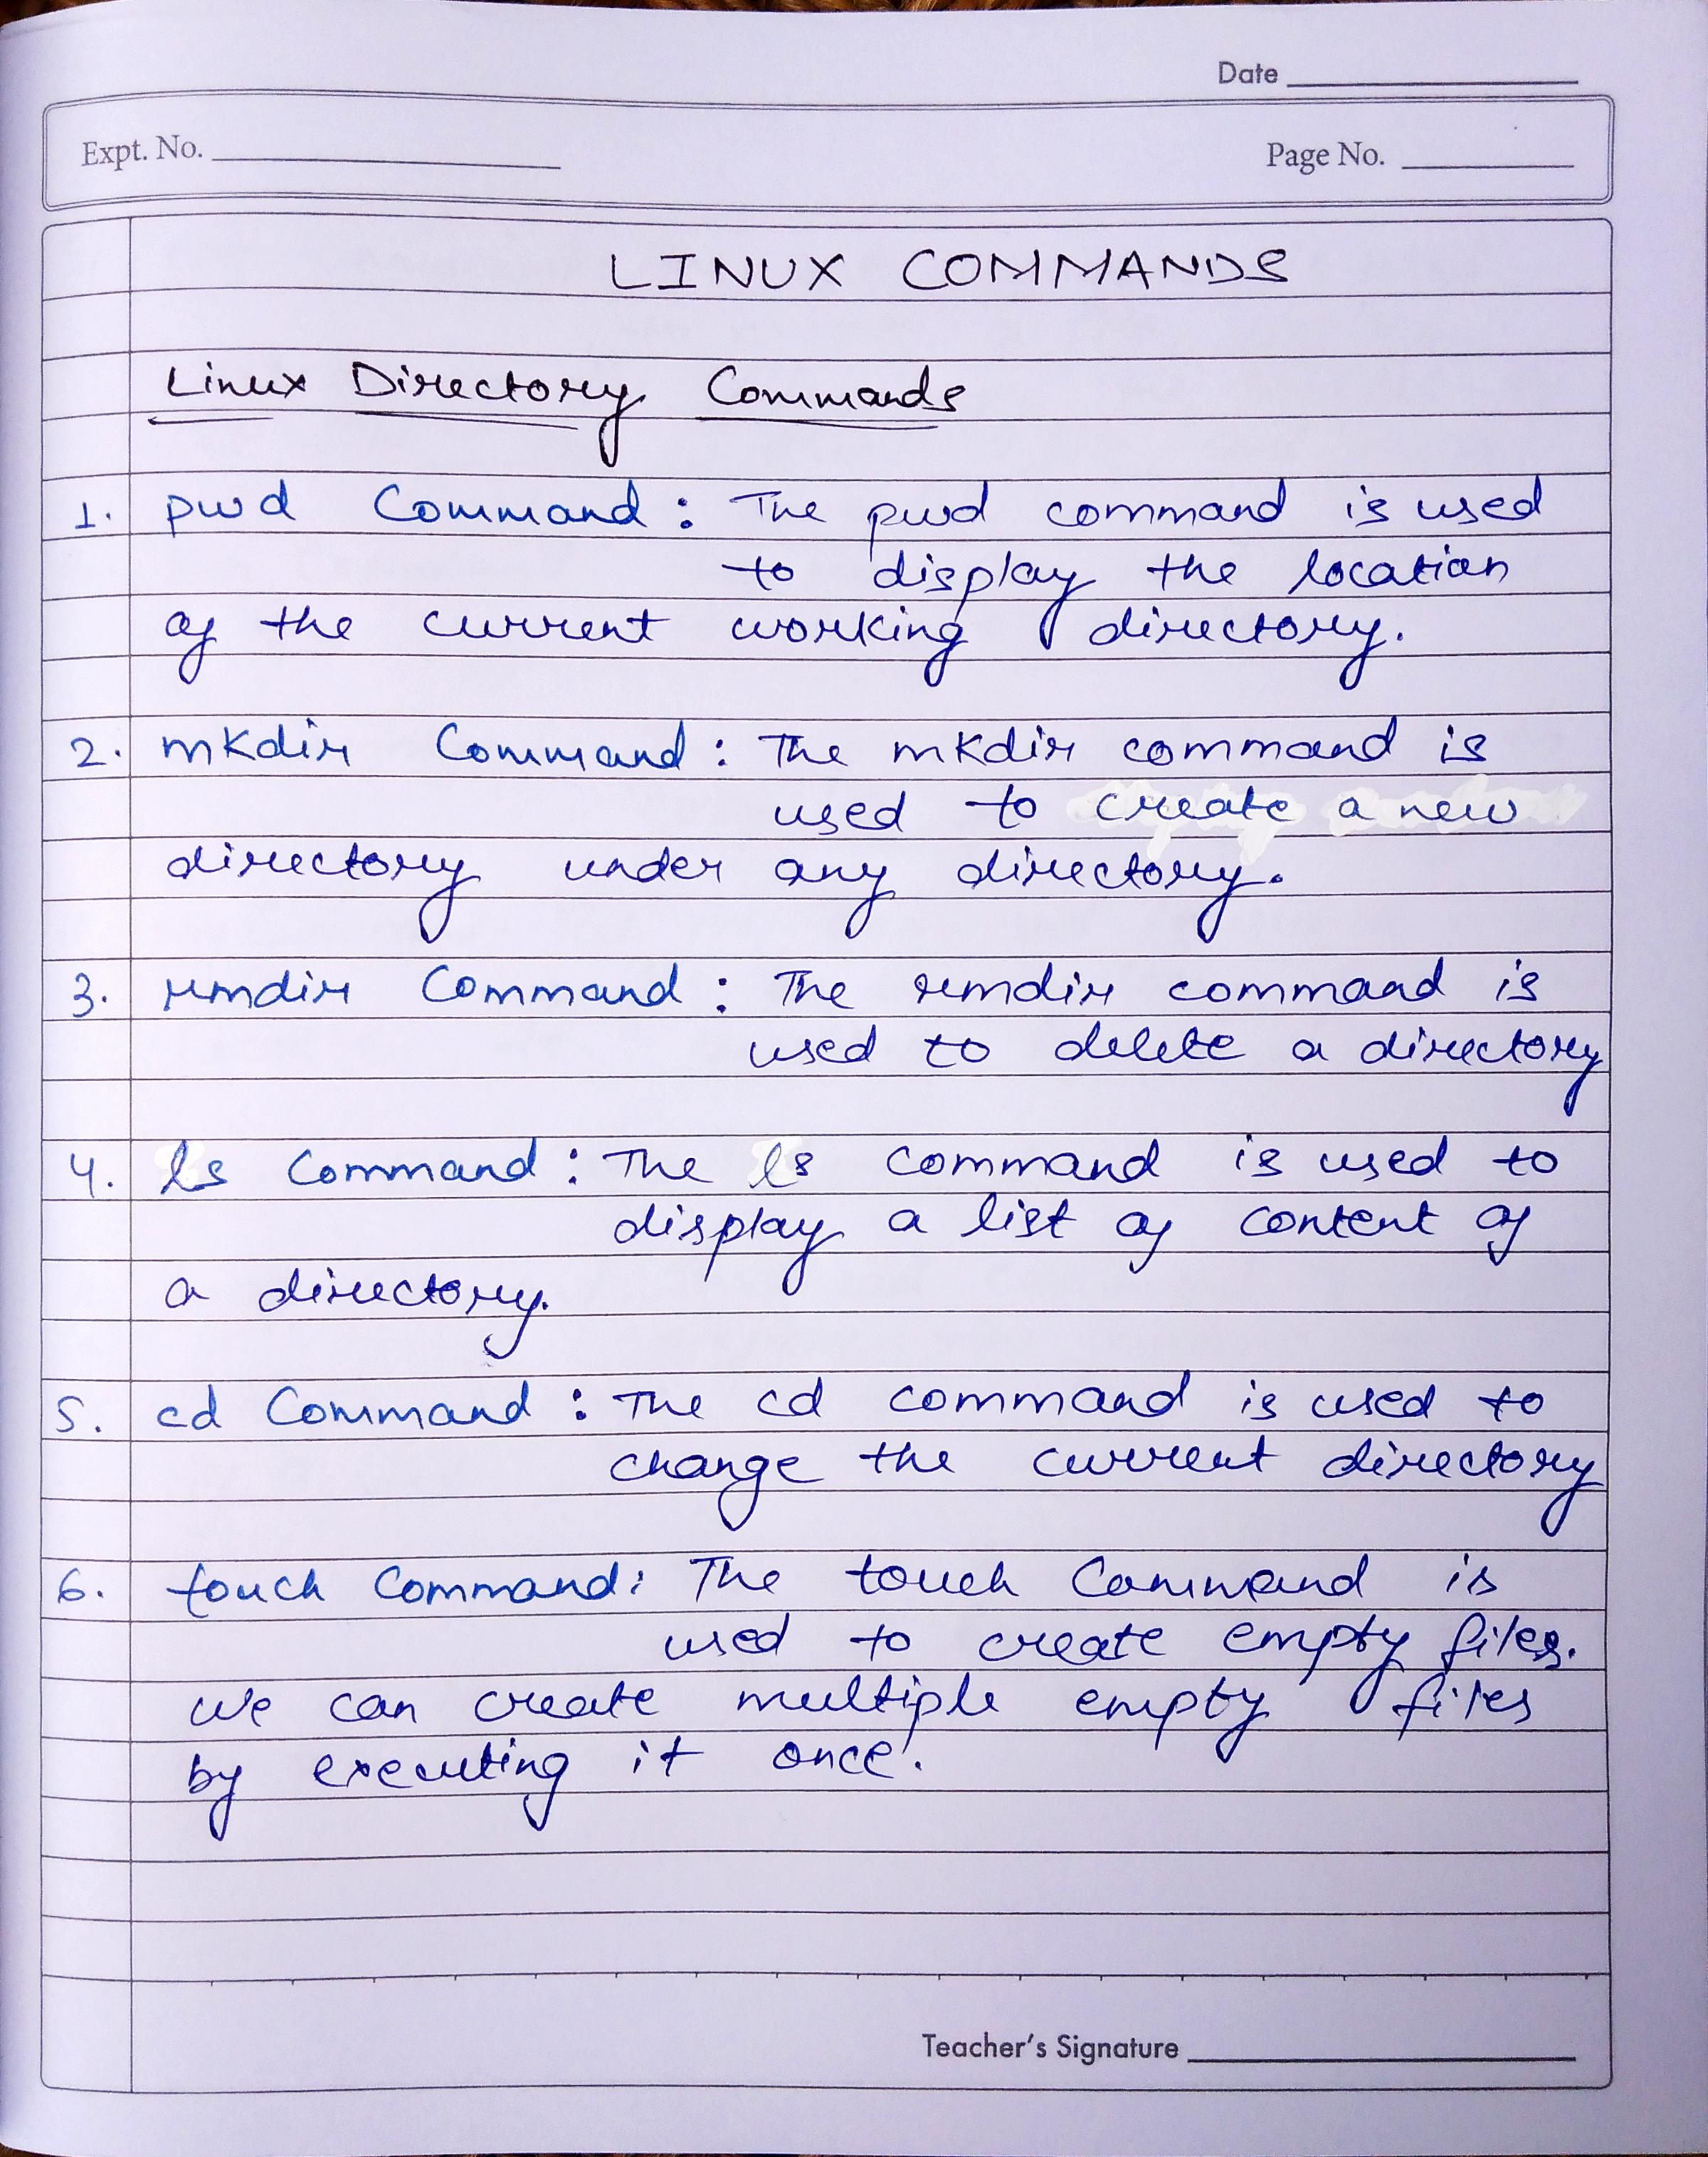 Date
Expt. No.
Page No.
LINUX COMMANDS
Linux Directory Commands
1. pwd Command : The pwd command is used
to display the location
of the current working directory.
2. mkdir Command : The mkdir command is
used to create a new
directory under any directory.
3. rmdir Command : The rmdir command is
used to delete a directory
4. ls Command : The ls command is used to
display a list of content of
a directory.
5. cd Command : The cd command is used to
change the current directory
6. touch Command : The touch Command is
used to create empty files.
we can create multiple empty files
by executing it once.
Teacher's Signature